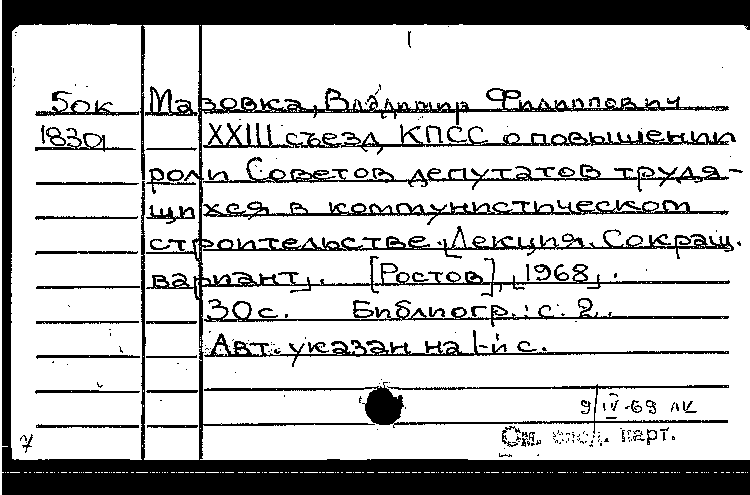 5ок Мазовка, Владимир Филиппович
1830 XXIII съезд КПСС о повышении
роли Советов депутатов трудя-
щихся в коммунистическом
строительстве. [Лекция. Сокращ.
вариант]. [Ростов], [1968].
30 с. Библиогр.: с. 2.
Авт. указан на 1-й с.
9/IV-69 ЛК
См. след. карт.
7